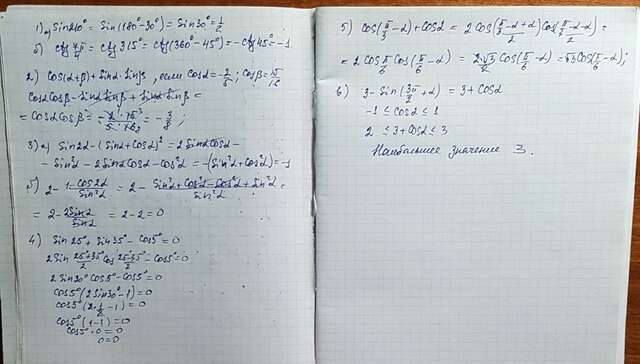 1) а) Sin210° = Sin(180°-30°) = Sin30° = 1/2
б) ctg 7π/4 = ctg 315° = ctg(360°-45°) = -ctg45° = -1.
2) cos(α+β) + Sinα·Sinβ, если cosα = -2/5; cosβ =
cosα cosβ - Sinα Sinβ + Sinα Sinβ =
= cosα cosβ = = -3/8;
3) а) Sin2α - (Sinα + cosα)² = 2Sinα cosα -
- Sin²α - 2Sinα cosα - cos²α = -(Sin²α + cos²α) = -1
б) 2 - (1 - cos2α)/Sin²α = 2 - (Sin²α + cos²α - cos²α + Sin²α)/Sin²α =
= 2 - 2Sin²α/Sin²α = 2 - 2 = 0
4) Sin25° + Sin35° - cos5° = 0
2Sin (25°+35°)/2 cos (25°-35°)/2 - cos5° = 0
2Sin30° cos5° - cos5° = 0
cos5°(2Sin30° - 1) = 0
cos5°(2·1/2 - 1) = 0
cos5°(1-1) = 0
cos5°·0 = 0
0=0
5) cos(π/3 - α) + cosα = 2cos (π/3 - α + α)/2 cos (π/3 - α - α)/2 =
= 2cos π/6 cos(π/6 - α) = 2·√3/2 cos(π/6 - α) = √3 cos(π/6 - α);
6) 3 - Sin(3π/2 + α) = 3 + cosα
-1 ≤ cosα ≤ 1
2 ≤ 3 + cosα ≤ 3
Наибольшее значение 3.